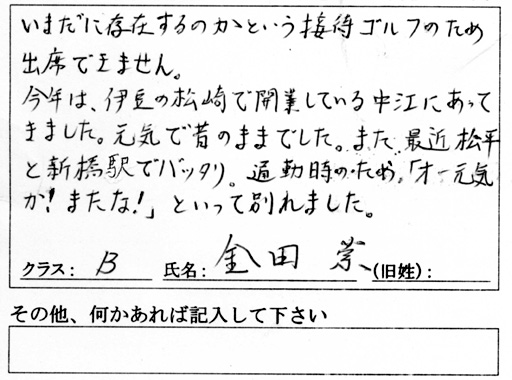 いまだに存在するのかという接待ゴルフのため
出席できません。
今年は、伊豆の松崎で開業している中江にあって
きました。元気で昔のままでした。また、最近松平
と新橋駅でバッタリ。通勤時のため、「オー元気
か!またな!」といって別れました。
クラス: B 氏名: 金田 崇 (旧姓):
その他、何かあれば記入して下さい